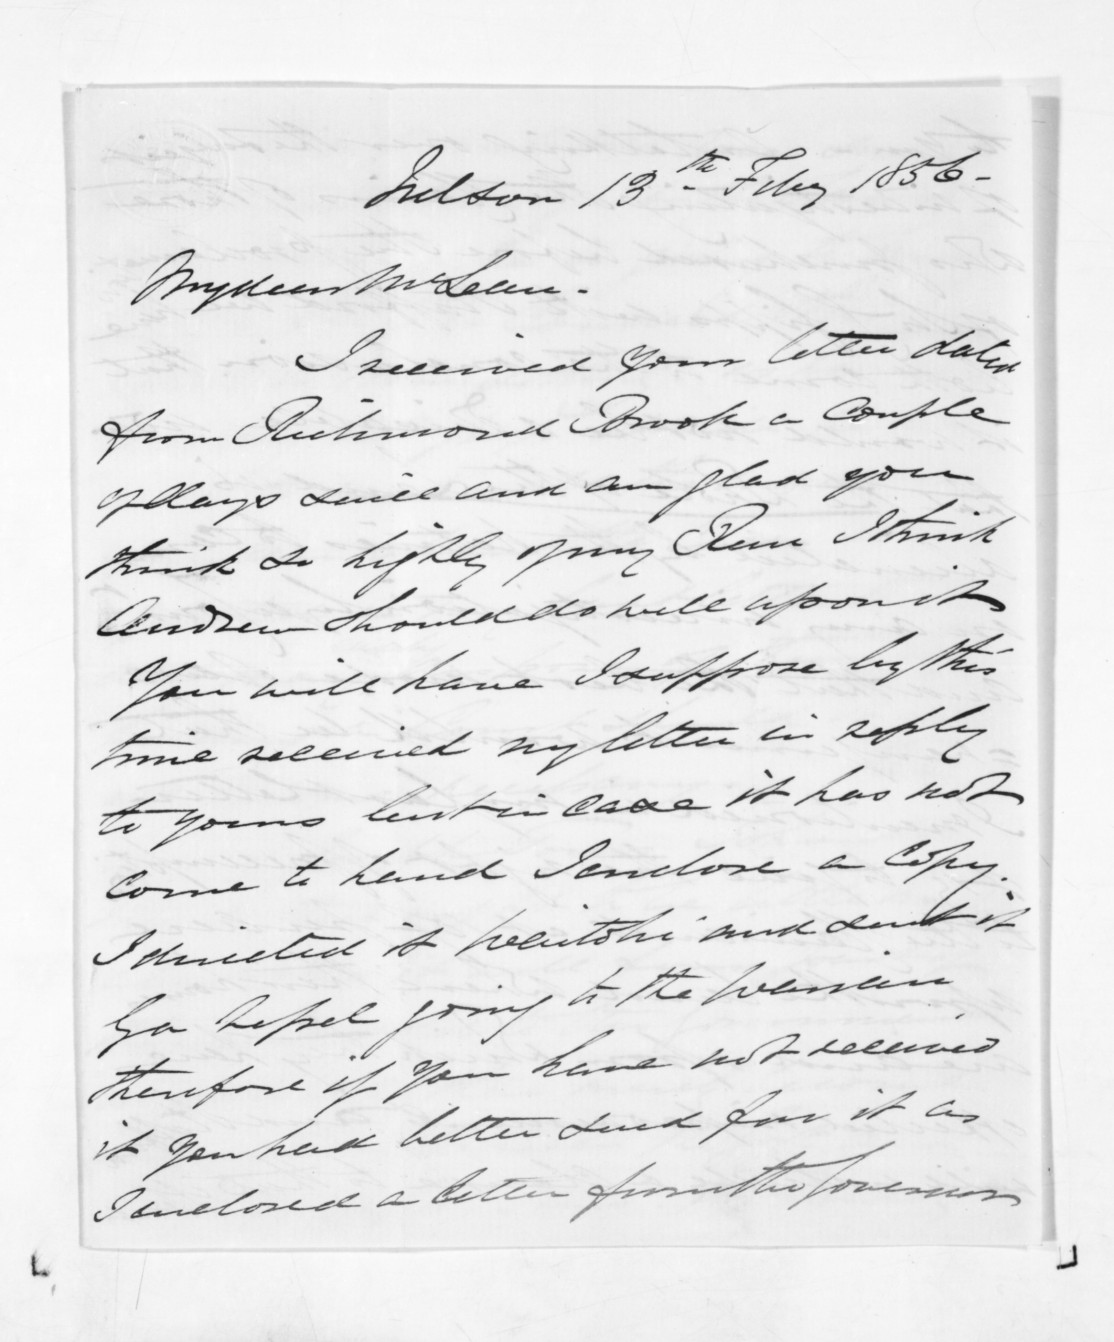 Nelson 13th Feby 1856-
My dear McLean-
I received your letter dated
from Richmond Brook a couple
of days since and am glad you
think so highly of my Run I think
Andrew should do well upon it
You will have I suppose by this
time received my letter in reply
to yours but in case it has not
come to hand I enclose a copy.
I directed it and sent it
by a going to the Wairau
therefore if you have not received
it you had better send for it as
I enclosed a letter from the Governor